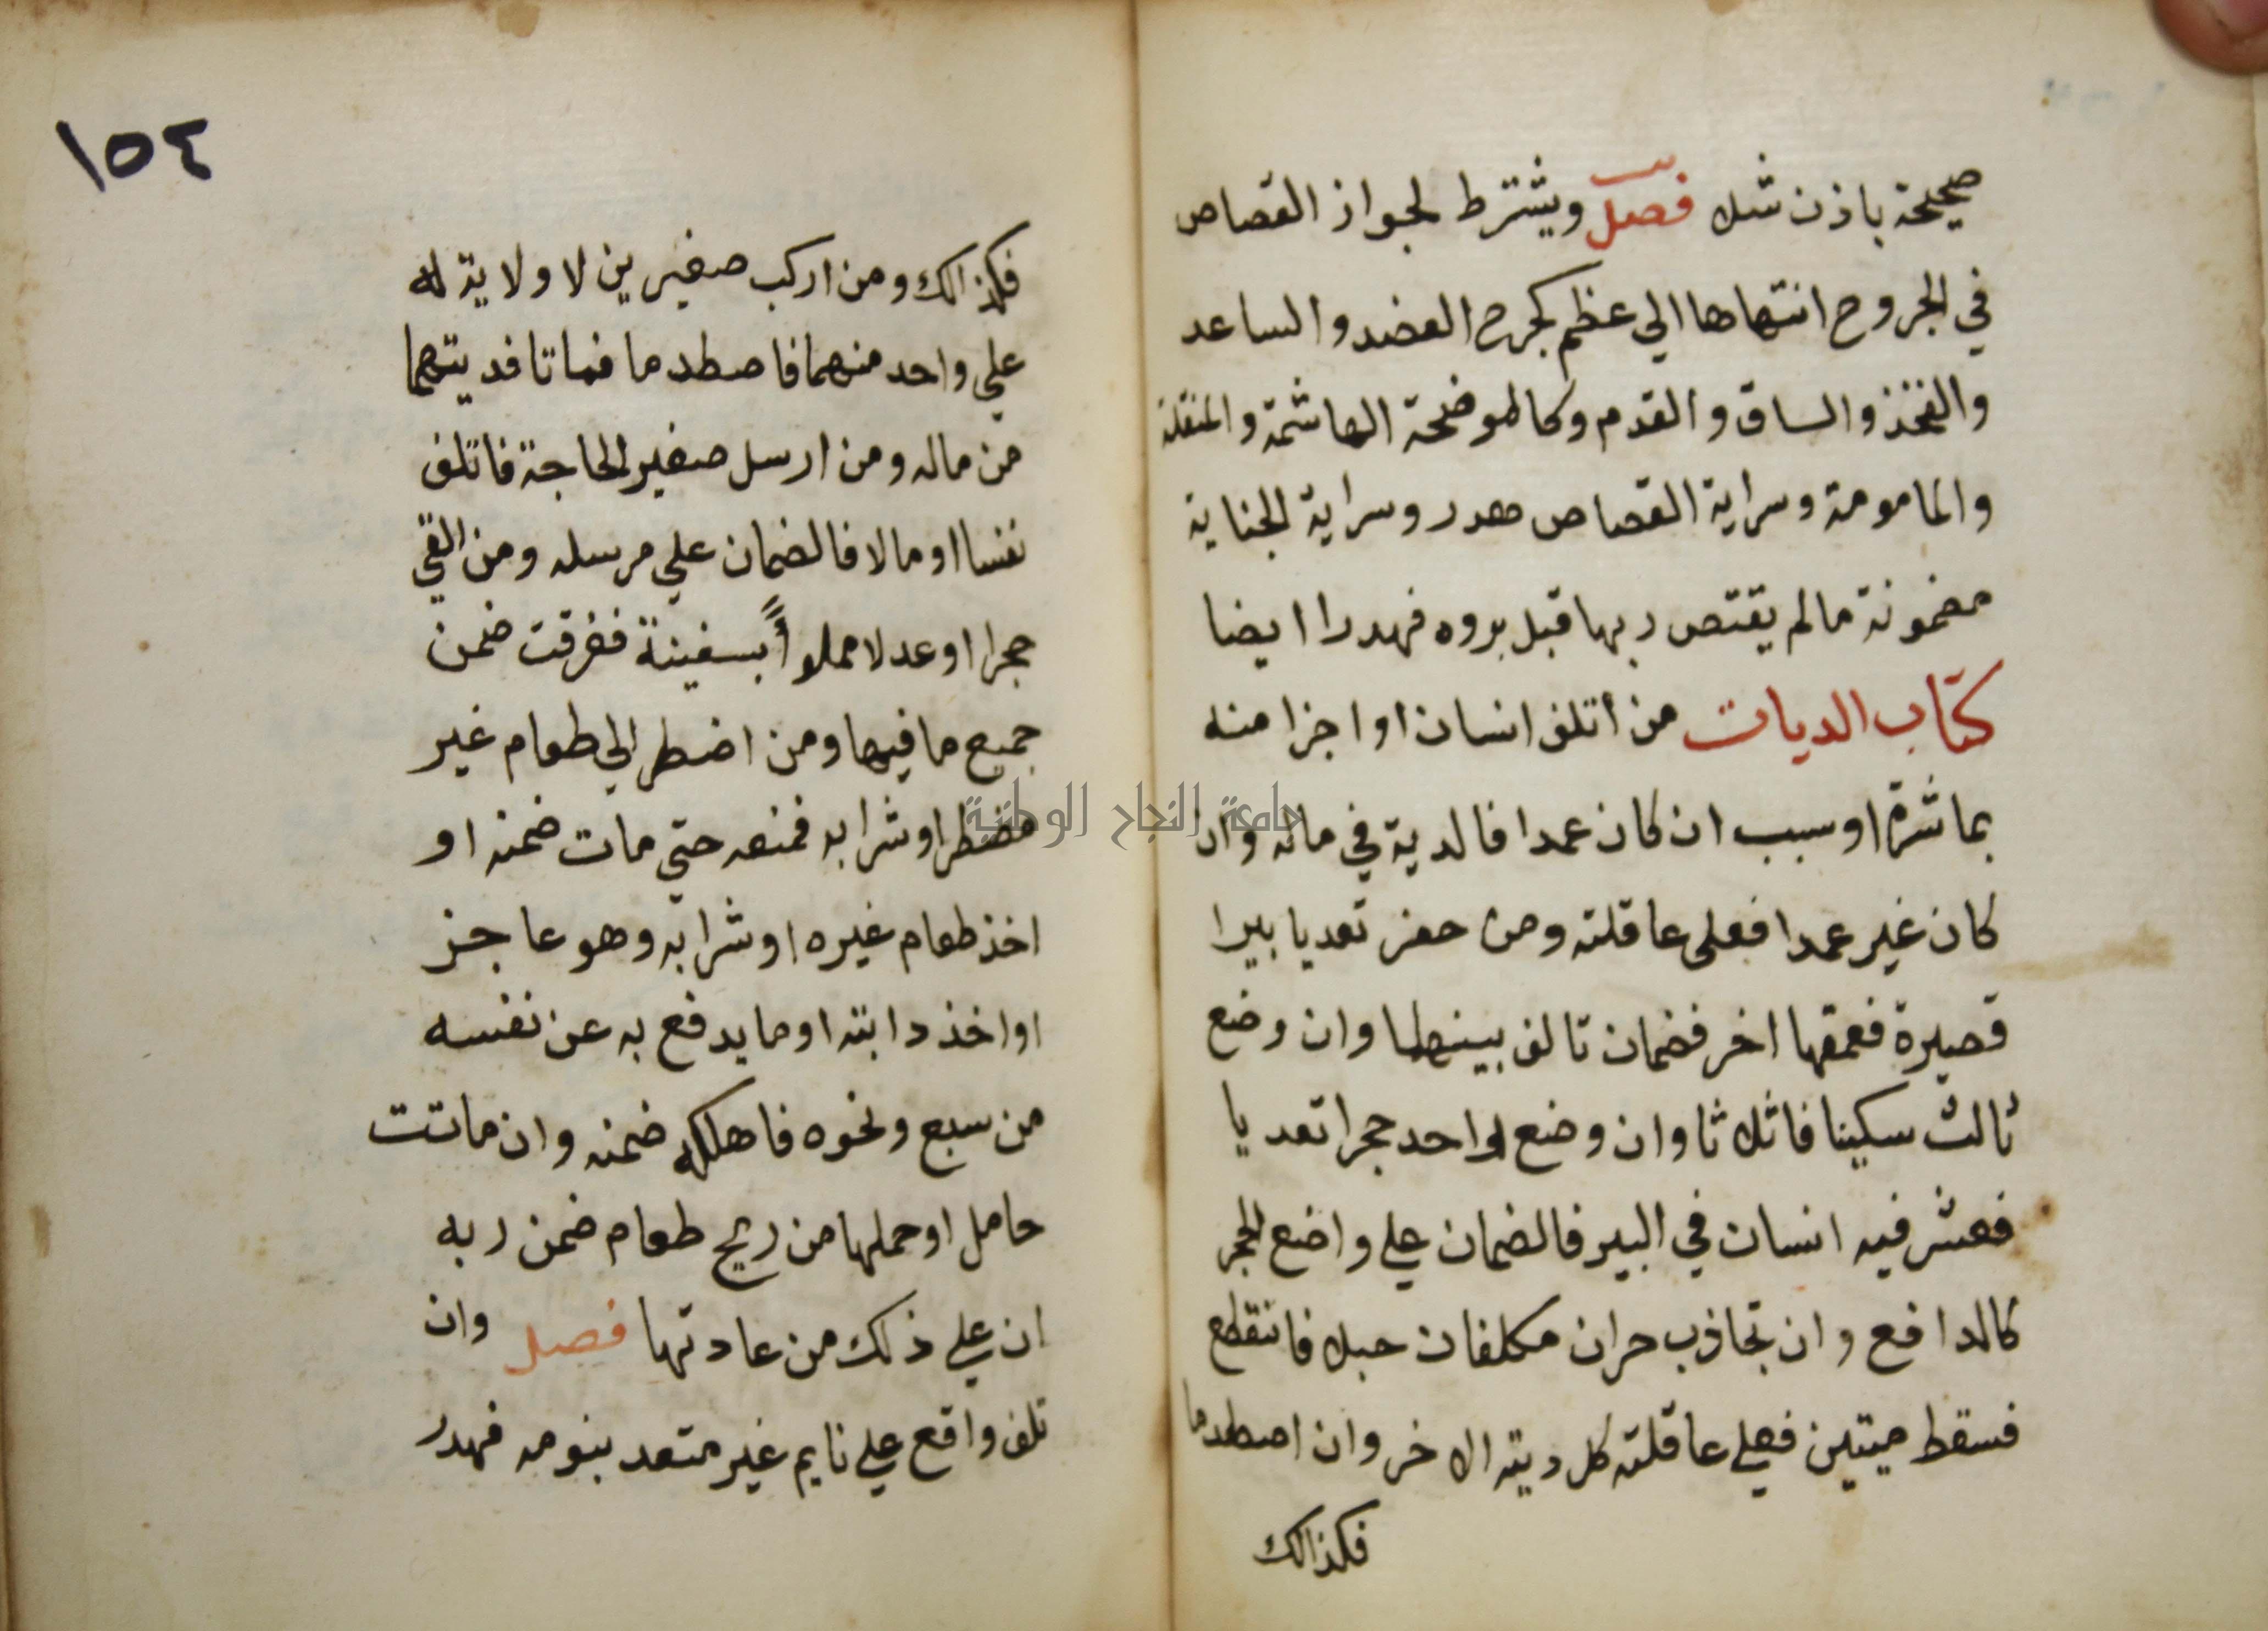 صحيحة باذن شلا فصل ويشترط لجواز القصاص
في الجروح انتهاها الي عظم كجرح العضد والساعد
والفخذ والساق والقدم وكالموضحة الهاشمة والمنقلة
والمامومة وسراية القصاص هدر وسراية الجناية
مضمونة مالم يقتص ربها قبل بروه فهدرا ايضا
كتاب الديات من أتلف انسان او اجزا منه
بماشرة او سبب ان كان عمدا فالدية في ماله وان
كان غير عمدا فعلى عاقلته ومن حفر تعديا بيرا
قصيرة فعمقها اخر فضمان تالف بينهما وان وضع
ثالث سكينا فاثلاثا وان وضع واحد حجرا تعديا
فعشر فيه انسان في البير فالضمان علي واضع الحجر
كالدافع وان تجاذب حران مكلفان حبلا فانقطع
فسقط ميتين فعلي عاقلته كل دية الاخر وان اصطدما
فكذالك
١٥٤
فكذالك ومن اركب صغيرين لا ولاية له
علي واحد منهما فاصطدما فماتا فديتهما
من ماله ومن ارسل صغيرا لحاجة فاتلف
نفسا او مالا فالضمان علي مرسله ومن القي
حجرا او عدلا مملوأً بسفينة فغرقت ضمن
جميع ما فيها ومن اضطر الي طعام غير
مضطر او شرابه فمنعه حتي مات ضمنه او
اخذ طعام غيره او شرابه وهو عاجز
او اخذ دابته او ما يدفع به عن نفسه
من سبع ونحوه فاهلكه ضمنه وان ماتت
حامل او حملها من ريح طعام ضمن ربه
ان علي ذلك من عادتها فصل وان
تلف واقع علي نايم غير متعد بنومه فهدر
جامعة النجاح الوطنية